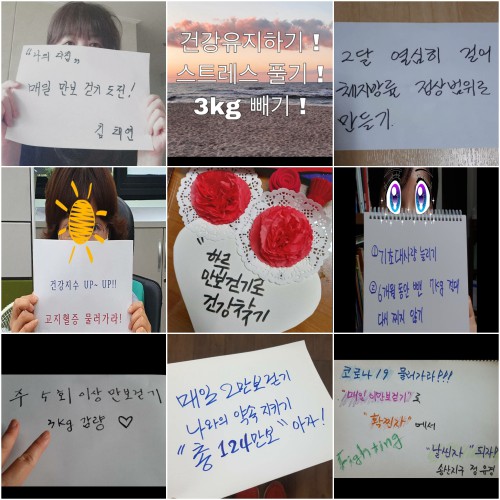 "나의 다짐"
매일 만보 걷기 도전!
김
건강유지하기 !
스트레스 풀기 !
3kg 빼기 !
2달 열심히 걸어
체지방률 정상범위로
만들기.
건강지수 UP~ UP!!
고지혈증 물러가라!
"하루
만보걷기로
건강찾기
①기초대사량 늘리기
②6개월동안 뺀 7kg 절대
다시 찌지 않기
주 5회 이상 만보걷기
3kg 감량 ♡
매일 2만보걷기
나와의 약속 지키기
"총 124만보" 아자!
코로나19 물러가라!!!
"매일 이만보걷기"로
"확찐자" 에서
"날씬자" 되자!
Fighting
송산지구 정유경